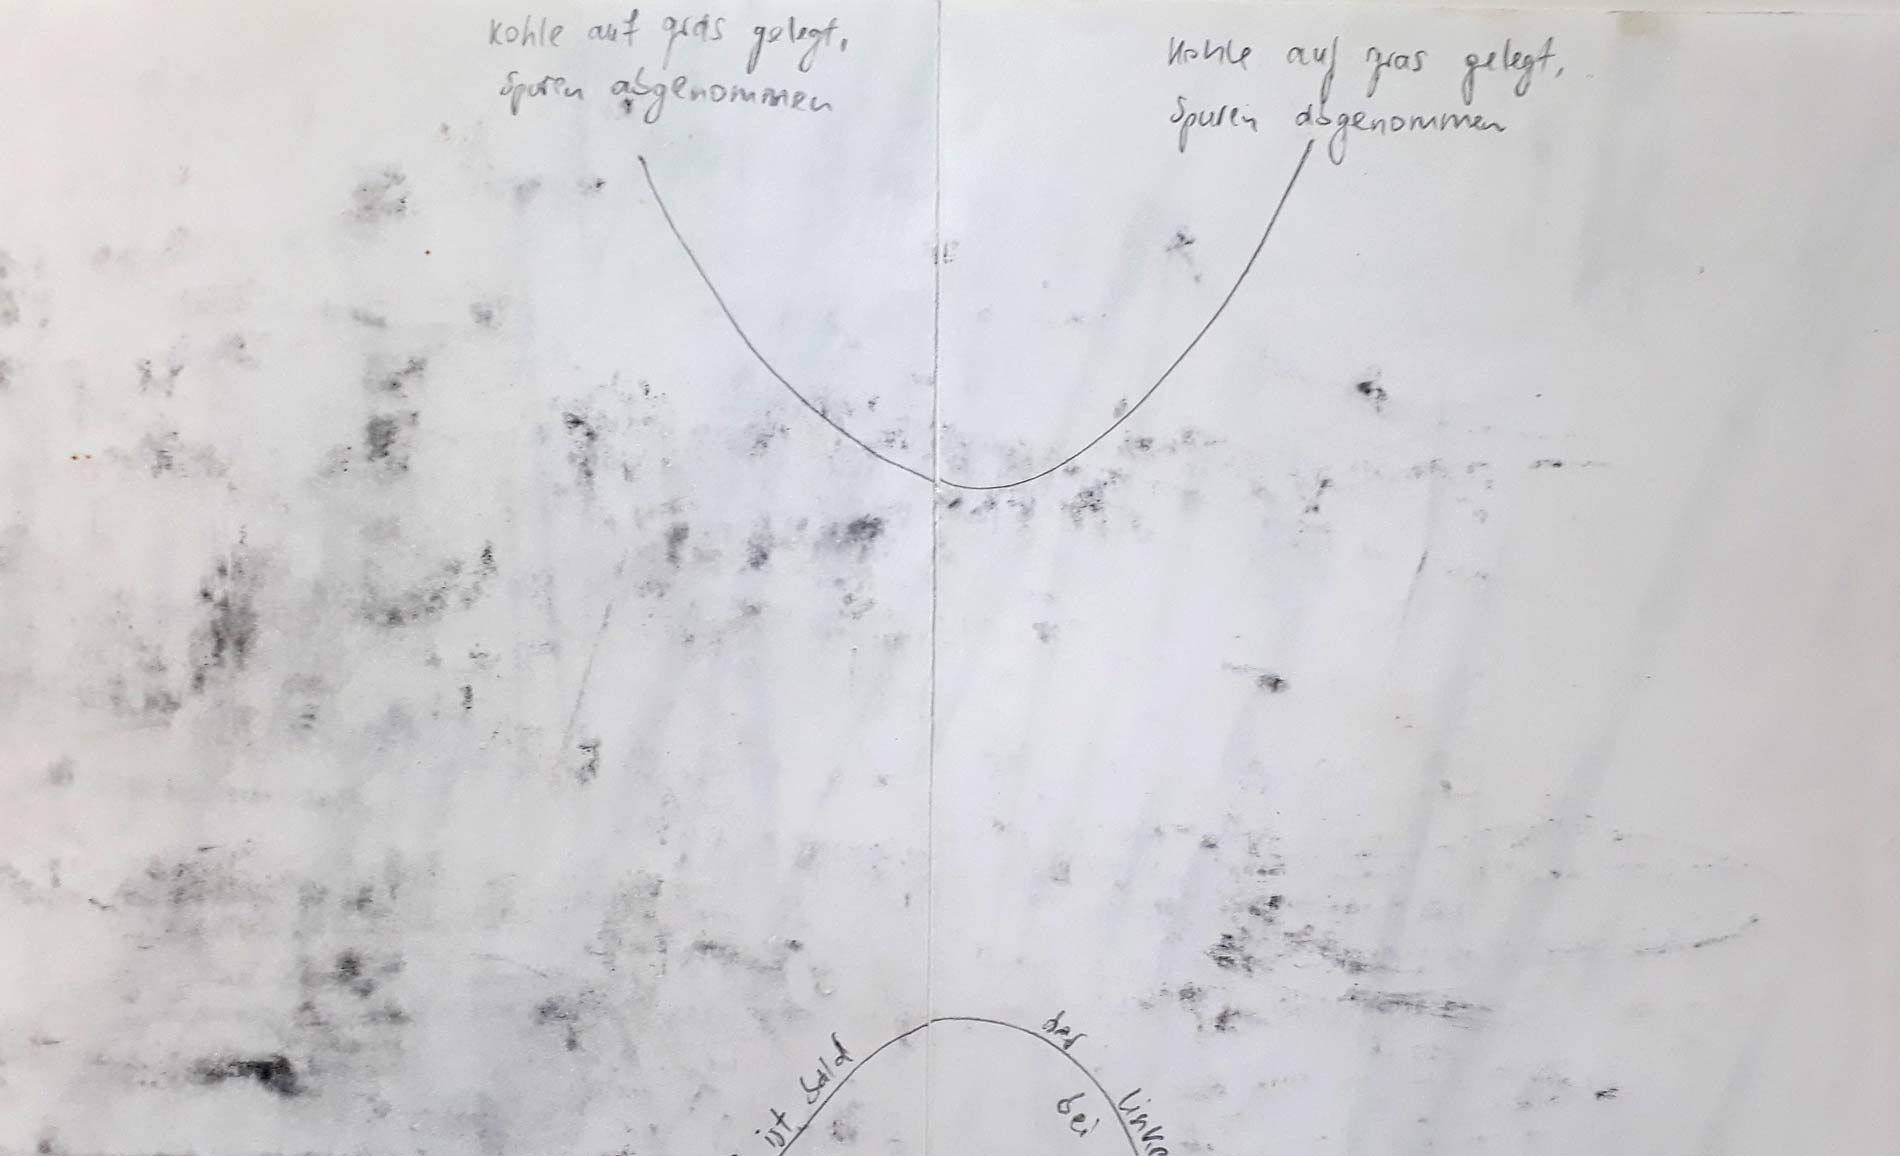 Kohle auf gras gelegt,
Spuren abgenommen
Kohle auf gras gelegt,
Spuren abgenommen
ist bald
bei